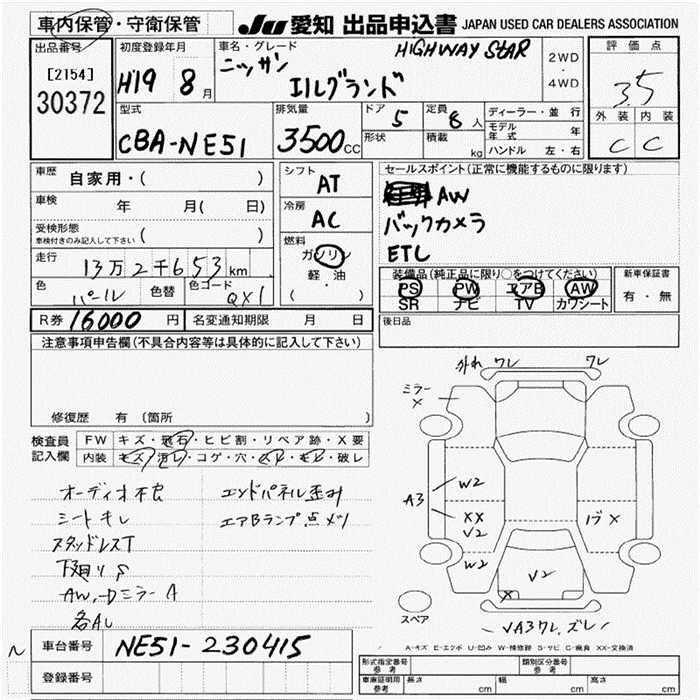 車内保管・守衛保管 JU 愛知 出品申込書 JAPAN USED CAR DEALERS ASSOCIATION
出品番号 初度登録年月 車名・グレード HIGHWAY STAR 評価点
[2154] 30372 H19 8月 ニッサン エルグランド 2WD・4WD 3.5
外装 内装
C C
型式 排気量 ドア 5 定員 8人 ディーラー・並行
CBA-NE51 3500CC 形状 積載 kg モデル年式 年
ハンドル 左・右
車歴 自家用・( ) シフト AT セールスポイント(正常に機能するものに限ります)
車検 年 月( 日) 冷房 AC AW
バックカメラ
受検形態 車検付きのみ記入して下さい ( ) 燃料 ガソリン ETC
走行 13万2千653km 軽・油 装備品(純正品に限り○をつけてください) 新車保証書
PS PW エアB AW 有・無
色 パール 色替 色コード QX1 ( ・ ) SR ナビ TV カワシート
R券 16000円 名変通知期限 月 日 後日品
注意事項申告欄(不具合内容等は具体的に記入して下さい)
外れ ワレ ワレ
ミラー X
修復歴 有 (箇所
検査員 FW キズ・飛石・ヒビ割・リペア跡・X要
記入欄 内装 キズ・汚レ・コゲ・穴・スレ・キレ・破レ
オーディオ不良 エンドパネル歪み
シートキレ エアBランプ点メツ
スタッドレスT
下廻りS
AW、Dミラー A
各AL
A3 W2
XX V2
W2
V2
X
スペア
VA3ワレ、ズレ
A-キズ E-エクボ U-凹み W-補修跡 S-サビ C-腐食 XX-交換済
車台番号 NE51-230415
登録番号
形式指定番号 参考 類別区分番号 参考
車庫証明用 参考 長さ cm 幅 cm 高さ cm